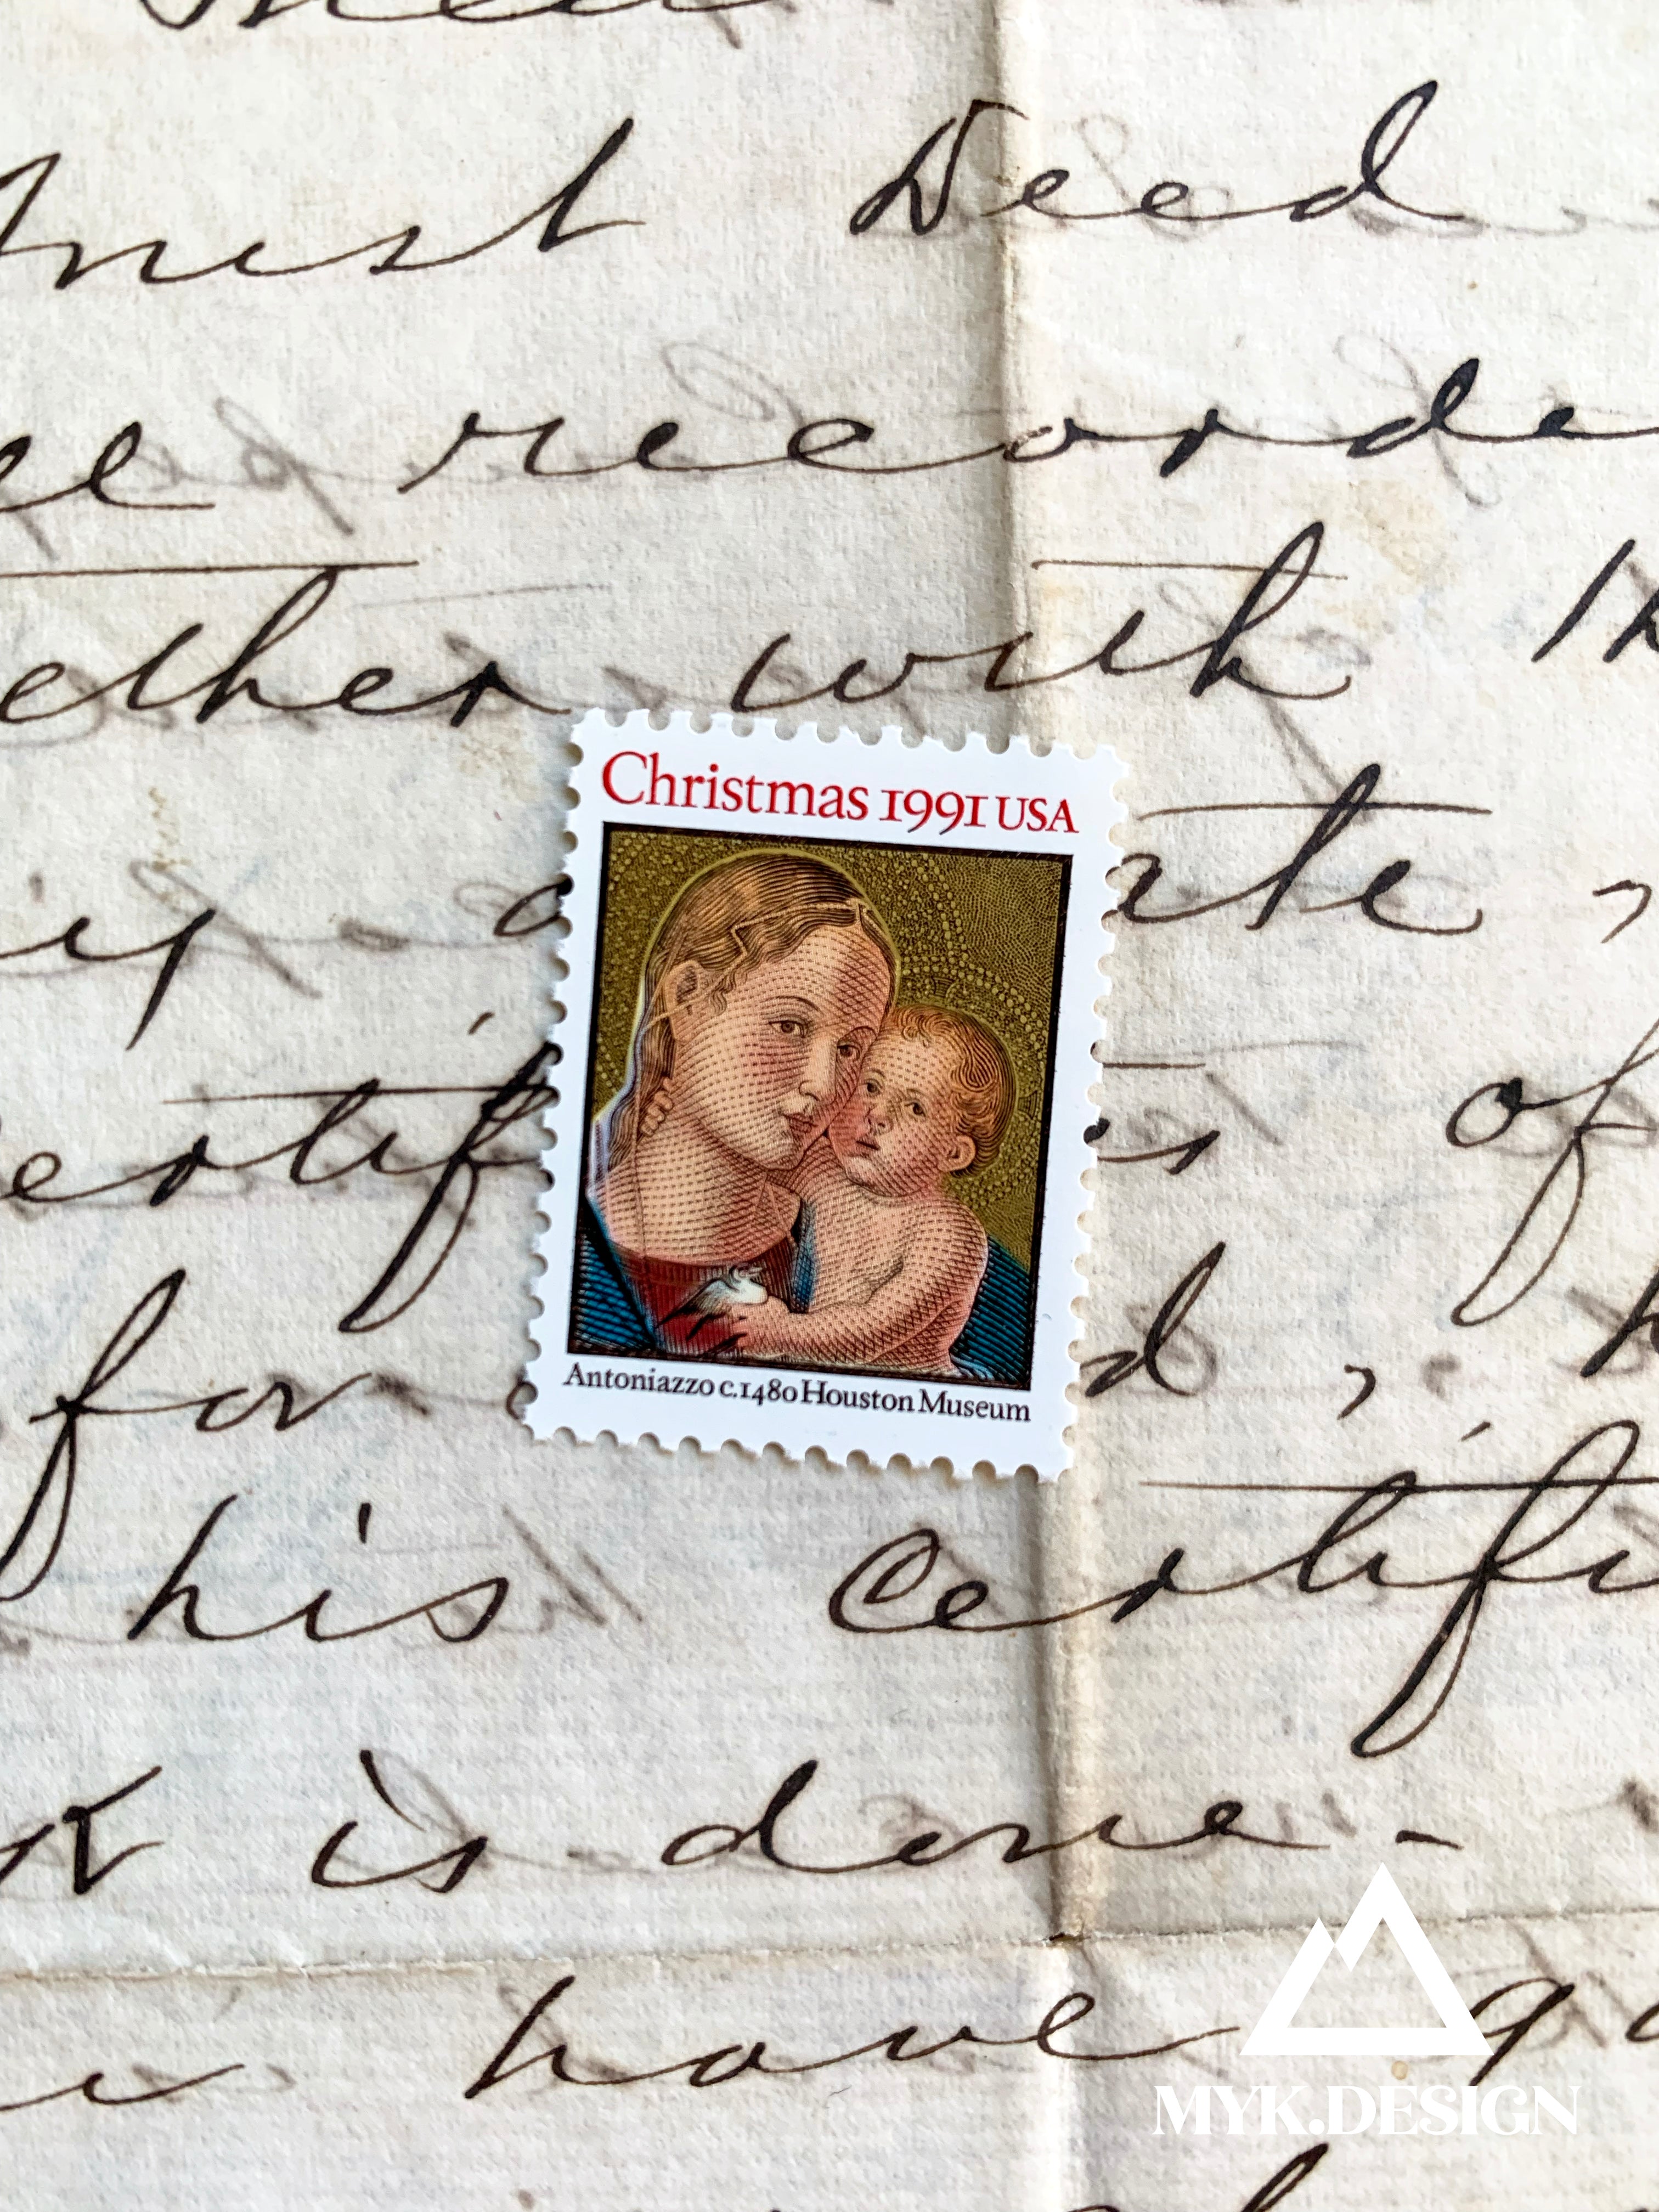 Trust Deed
recorde
ether with th
ate,
ertif es of
for d, h
his Certifi
is done -
have
Christmas 1991 USA
Antoniazzo c.1480 Houston Museum
MYK.DESIGN